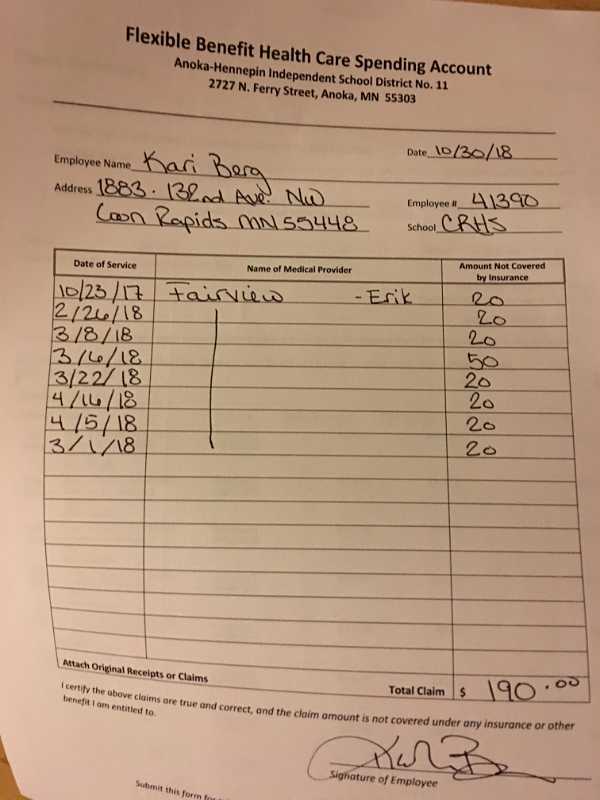 Flexible Benefit Health Care Spending Account
Anoka-Hennepin Independent School District No. 11
2727 N. Ferry Street, Anoka, MN 55303
Date 10/30/18
Employee Name Kari Berg
Address 1883 · 132nd Ave. NW
Employee # 41390
Coon Rapids MN 55448
School CRHS
Date of Service Name of Medical Provider Amount Not Covered by Insurance
10/23/17 Fairview - Erik 20
2/26/18 20
3/8/18 20
3/6/18 50
3/22/18 20
4/16/18 20
4/5/18 20
3/1/18 20
Attach Original Receipts or Claims
Total Claim $ 190.00
I certify the above claims are true and correct, and the claim amount is not covered under any insurance or other
benefit I am entitled to.
Signature of Employee
Submit this form for